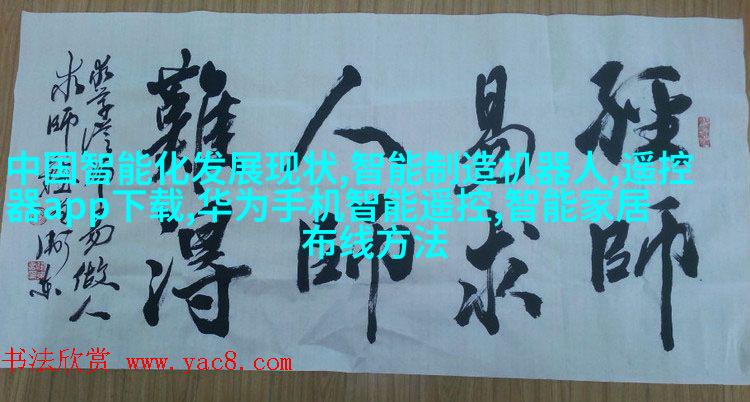 經師
易求
人師
難得
中国智能化发展现状,智能制造机器人,遥控
器app下载,华为手机智能遥控,智能家居
布线方法
书法欣赏 www.yac8.com